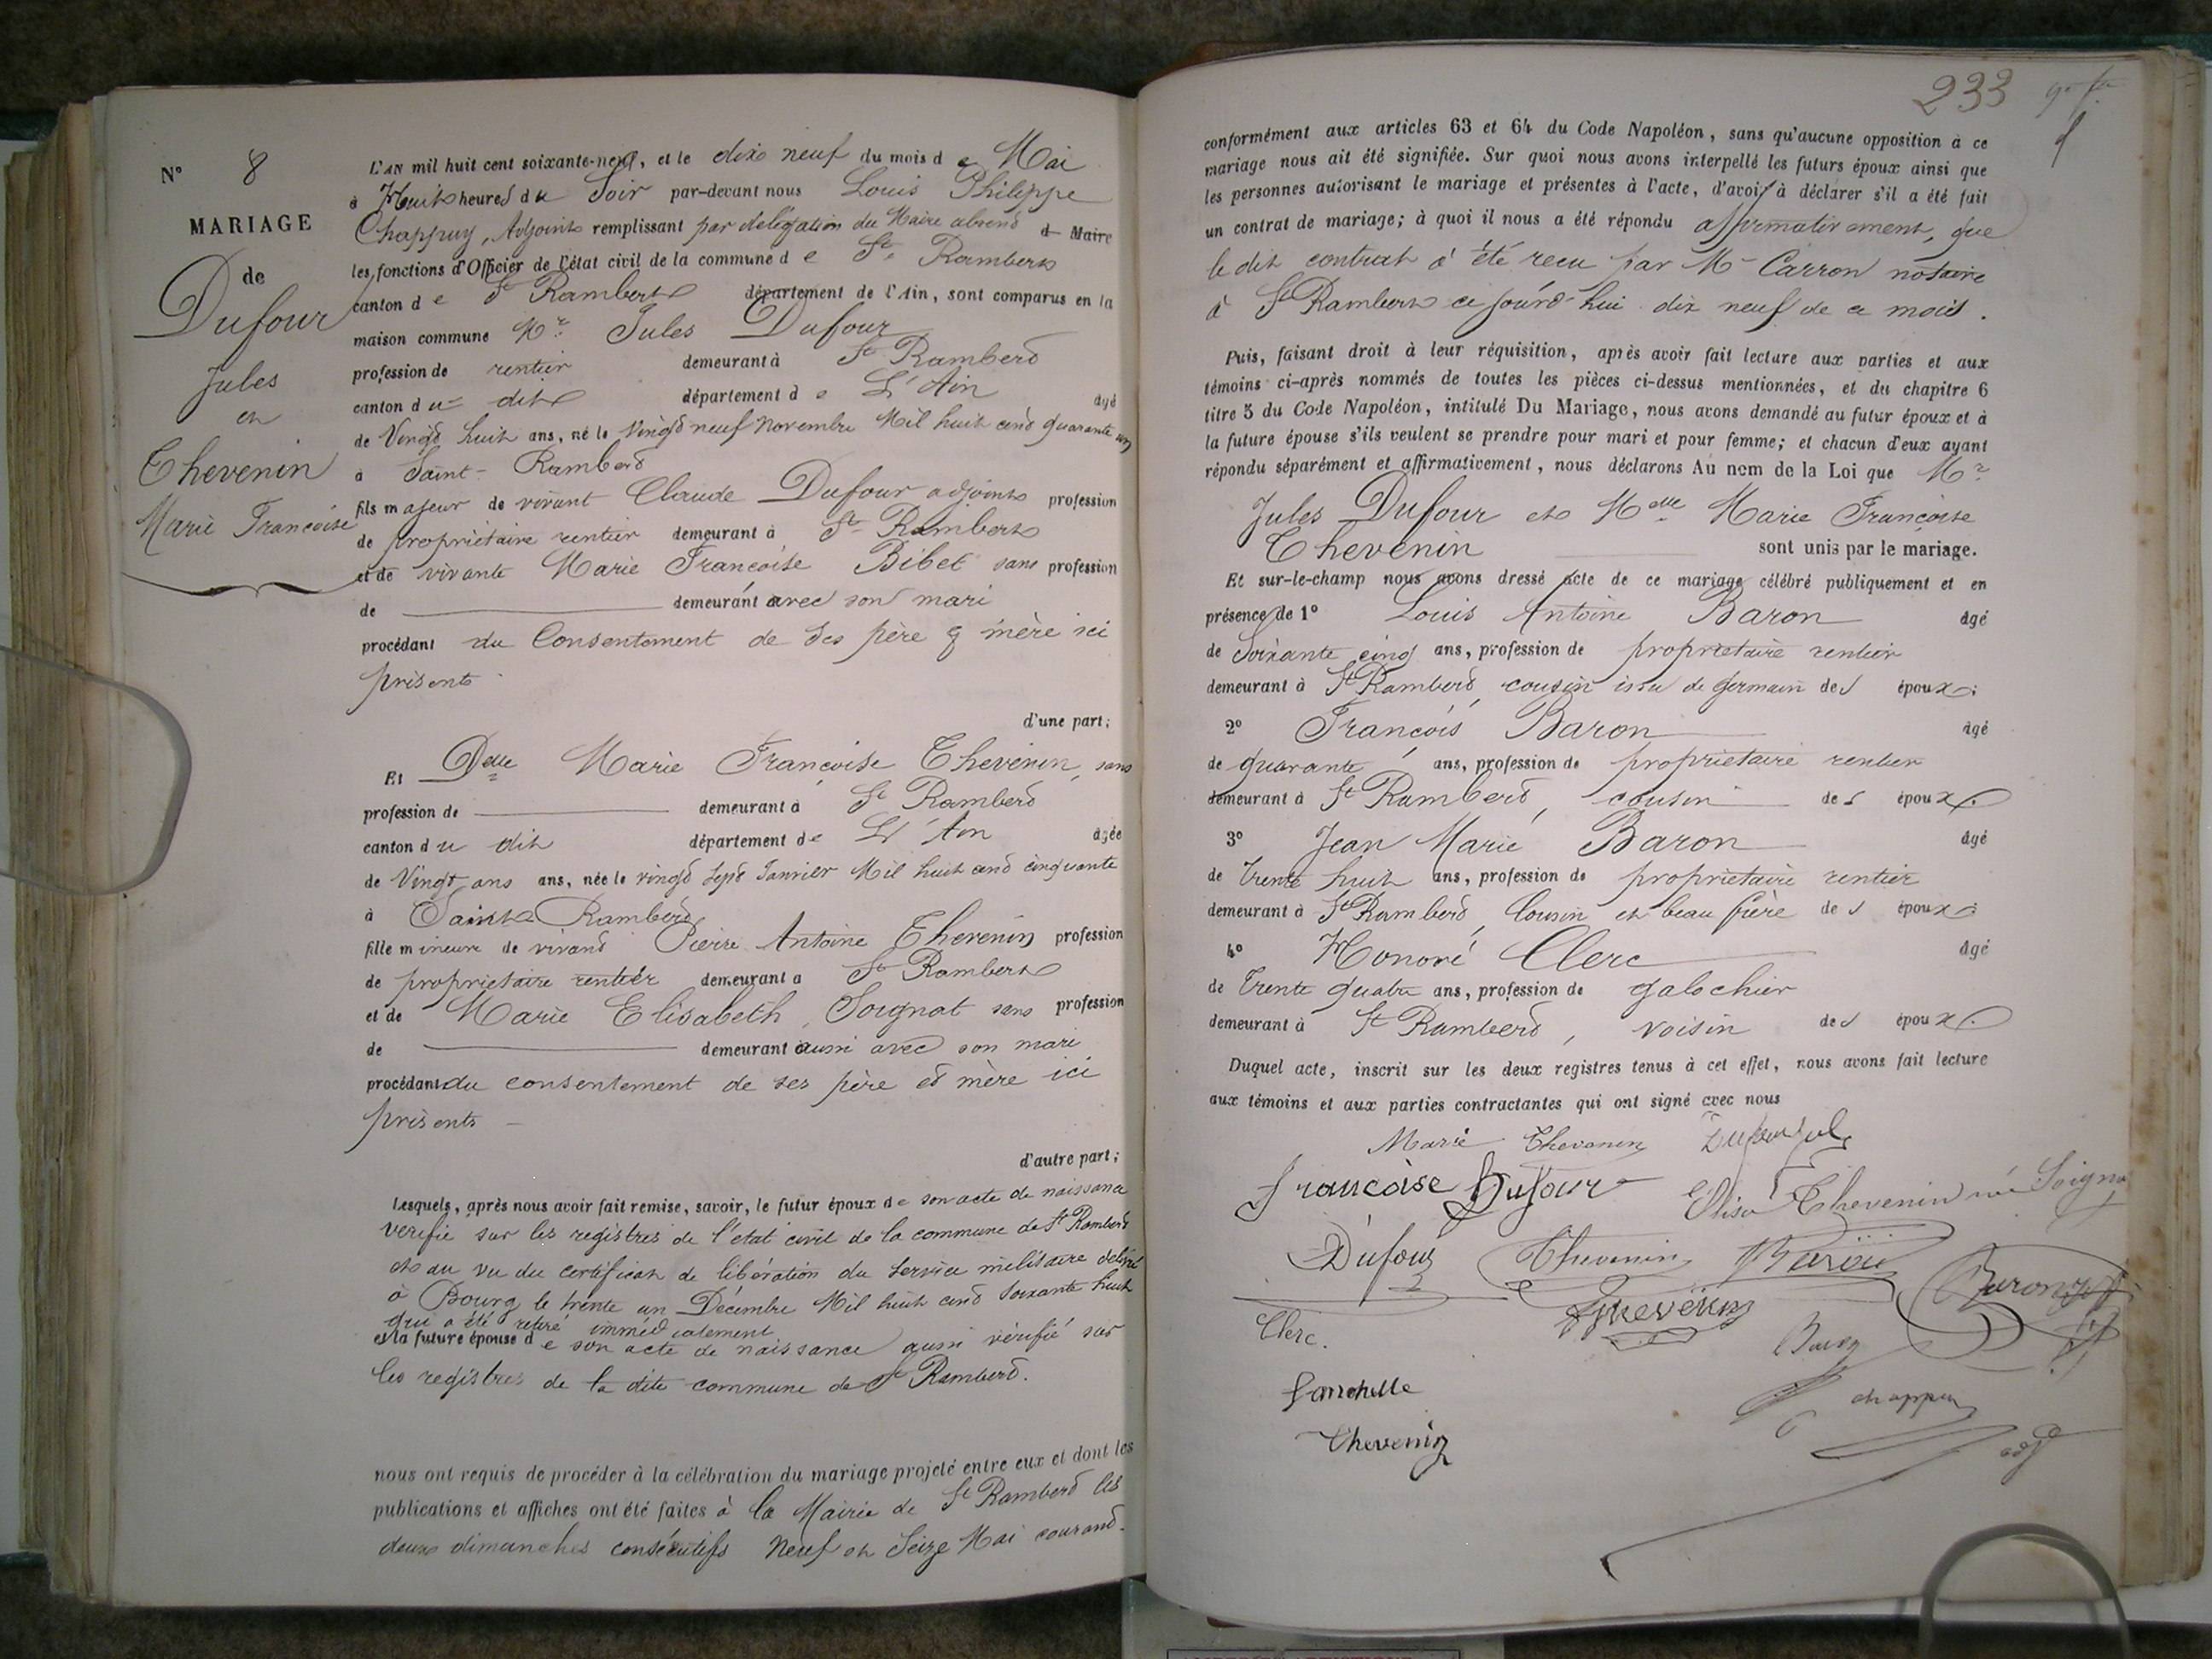 N° 8
MARIAGE
de
Dufour
Jules
et
Thevenin
Marie Françoise
L'AN mil huit cent soixante-neuf, et le dix neuf du mois de Mai
à Huit heures du Soir par-devant nous Louis Philippe
Chappuy, Adjoint remplissant par délégation du Maire absent d Maire
les fonctions d'Officier de l'état civil de la commune de St Rambert
canton de St Rambert département de l'Ain, sont comparus en la
maison commune Mr Jules Dufour
profession de rentier demeurant à St Rambert
canton du dit département de L'Ain âgé
de Vingt huit ans, né le Vingt neuf Novembre Mil huit cent quarante un
à Saint-Rambert
fils majeur de vivant Claude Dufour adjoint profession
de propriétaire rentier demeurant à St Rambert
et de vivante Marie Françoise Bibet sans profession
de demeurant avec son mari
procédant du Consentement de ses père & mère ici
présents
d'une part;
Et Delle Marie Françoise Thevenin, sans
profession de demeurant à St Rambert
canton du dit département de L'Ain âgée
de Vingt ans ans, née le vingt sept Janvier Mil huit cent cinquante
à Saint Rambert
fille mineure de vivant Pierre Antoine Thevenin profession
de propriétaire rentier demeurant à St Rambert
et de Marie Elisabeth Soignat sans profession
de demeurant aussi avec son mari
procédant du consentement de ses père et mère ici
présents
d'autre part;
Lesquels, après nous avoir fait remise, savoir, le futur époux de son acte de naissance
vérifié sur les registres de l'état civil de la commune de St Rambert
et au vu du certificat de libération du service militaire délivré
à Bourg le trente un Décembre Mil huit cent soixante huit
qui a été retiré immédiatement
et la future épouse de son acte de naissance aussi vérifié sur
les registres de la dite commune de St Rambert.
nous ont requis de procéder à la célébration du mariage projeté entre eux et dont les
publications et affiches ont été faites à la Mairie de St Rambert les
deux dimanches consécutifs Neuf et Seize Mai courant.
233
conformément aux articles 63 et 64 du Code Napoléon, sans qu'aucune opposition à ce
mariage nous ait été signifiée. Sur quoi nous avons interpellé les futurs époux ainsi que
les personnes autorisant le mariage et présentes à l'acte, d'avoir à déclarer s'il a été fait
un contrat de mariage; à quoi il nous a été répondu affirmativement, que
le dit contrat a été reçu par Me Carron notaire
à St Rambert ce jourd'hui dix neuf de ce mois.
Puis, faisant droit à leur réquisition, après avoir fait lecture aux parties et aux
témoins ci-après nommés de toutes les pièces ci-dessus mentionnées, et du chapitre 6
titre 5 du Code Napoléon, intitulé Du Mariage, nous avons demandé au futur époux et à
la future épouse s'ils veulent se prendre pour mari et pour femme; et chacun d'eux ayant
répondu séparément et affirmativement, nous déclarons Au nom de la Loi que Mr
Jules Dufour et Melle Marie Françoise
Thevenin sont unis par le mariage.
Et sur-le-champ nous avons dressé acte de ce mariage célébré publiquement et en
présence de 1° Louis Antoine Baron âgé
de Soixante cinq ans, profession de propriétaire rentier
demeurant à St Rambert, cousin issu de germain des époux;
2° François Baron âgé
de quarante ans, profession de propriétaire rentier
demeurant à St Rambert, cousin des époux.
3° Jean Marie Baron âgé
de Trente huit ans, profession de propriétaire rentier
demeurant à St Rambert, Cousin et beau frère des époux;
4° Honoré Clerc âgé
de Trente quatre ans, profession de galochier
demeurant à St Rambert, voisin des époux.
Duquel acte, inscrit sur les deux registres tenus à cet effet, nous avons fait lecture
aux témoins et aux parties contractantes qui ont signé avec nous
Marie Thevenin Dufour Jules
Françoise Dufour Elisa Thevenin née Soignat
Dufour Thevenin Baron Baron
Clerc. Thevenin
Baron
Fanchette chappuy
Thevenin adjt